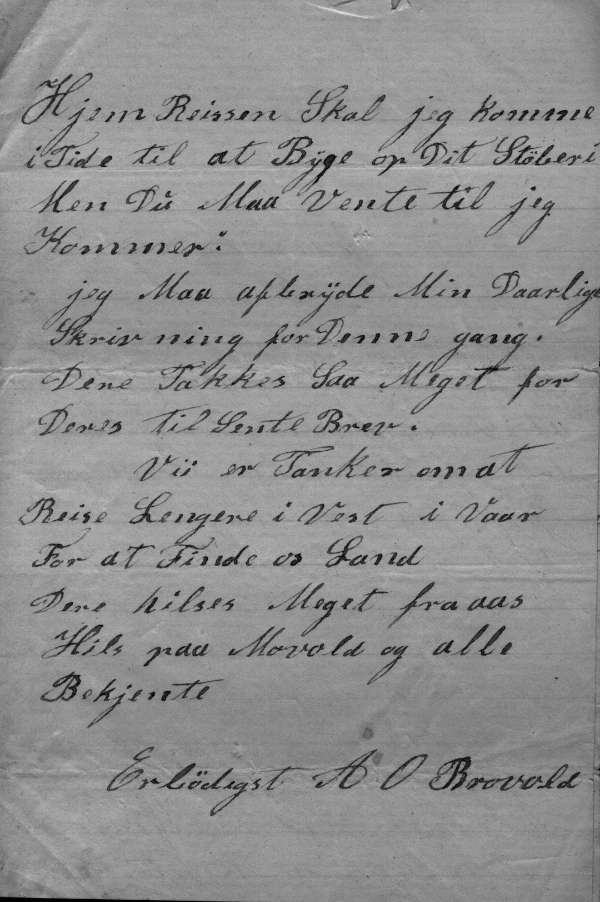 Hjem Reissen Skal jeg komme
i Tide til at Byge op Dit Stöberi
Men Du Maa Vente til jeg
Kommer.
jeg Maa afbryde Min Daarlige
Skrivning for Denne gang.
Dere Takkes Saa Meget for
Deres til Sente Brev.
Vii er Tanker om at
Reise Lengere i Vest i Vaar
For at Finde os Land
Dere hilses Meget fra aas
Hils paa Movold og alle
Bekjente
Erbödigst A O Brovold